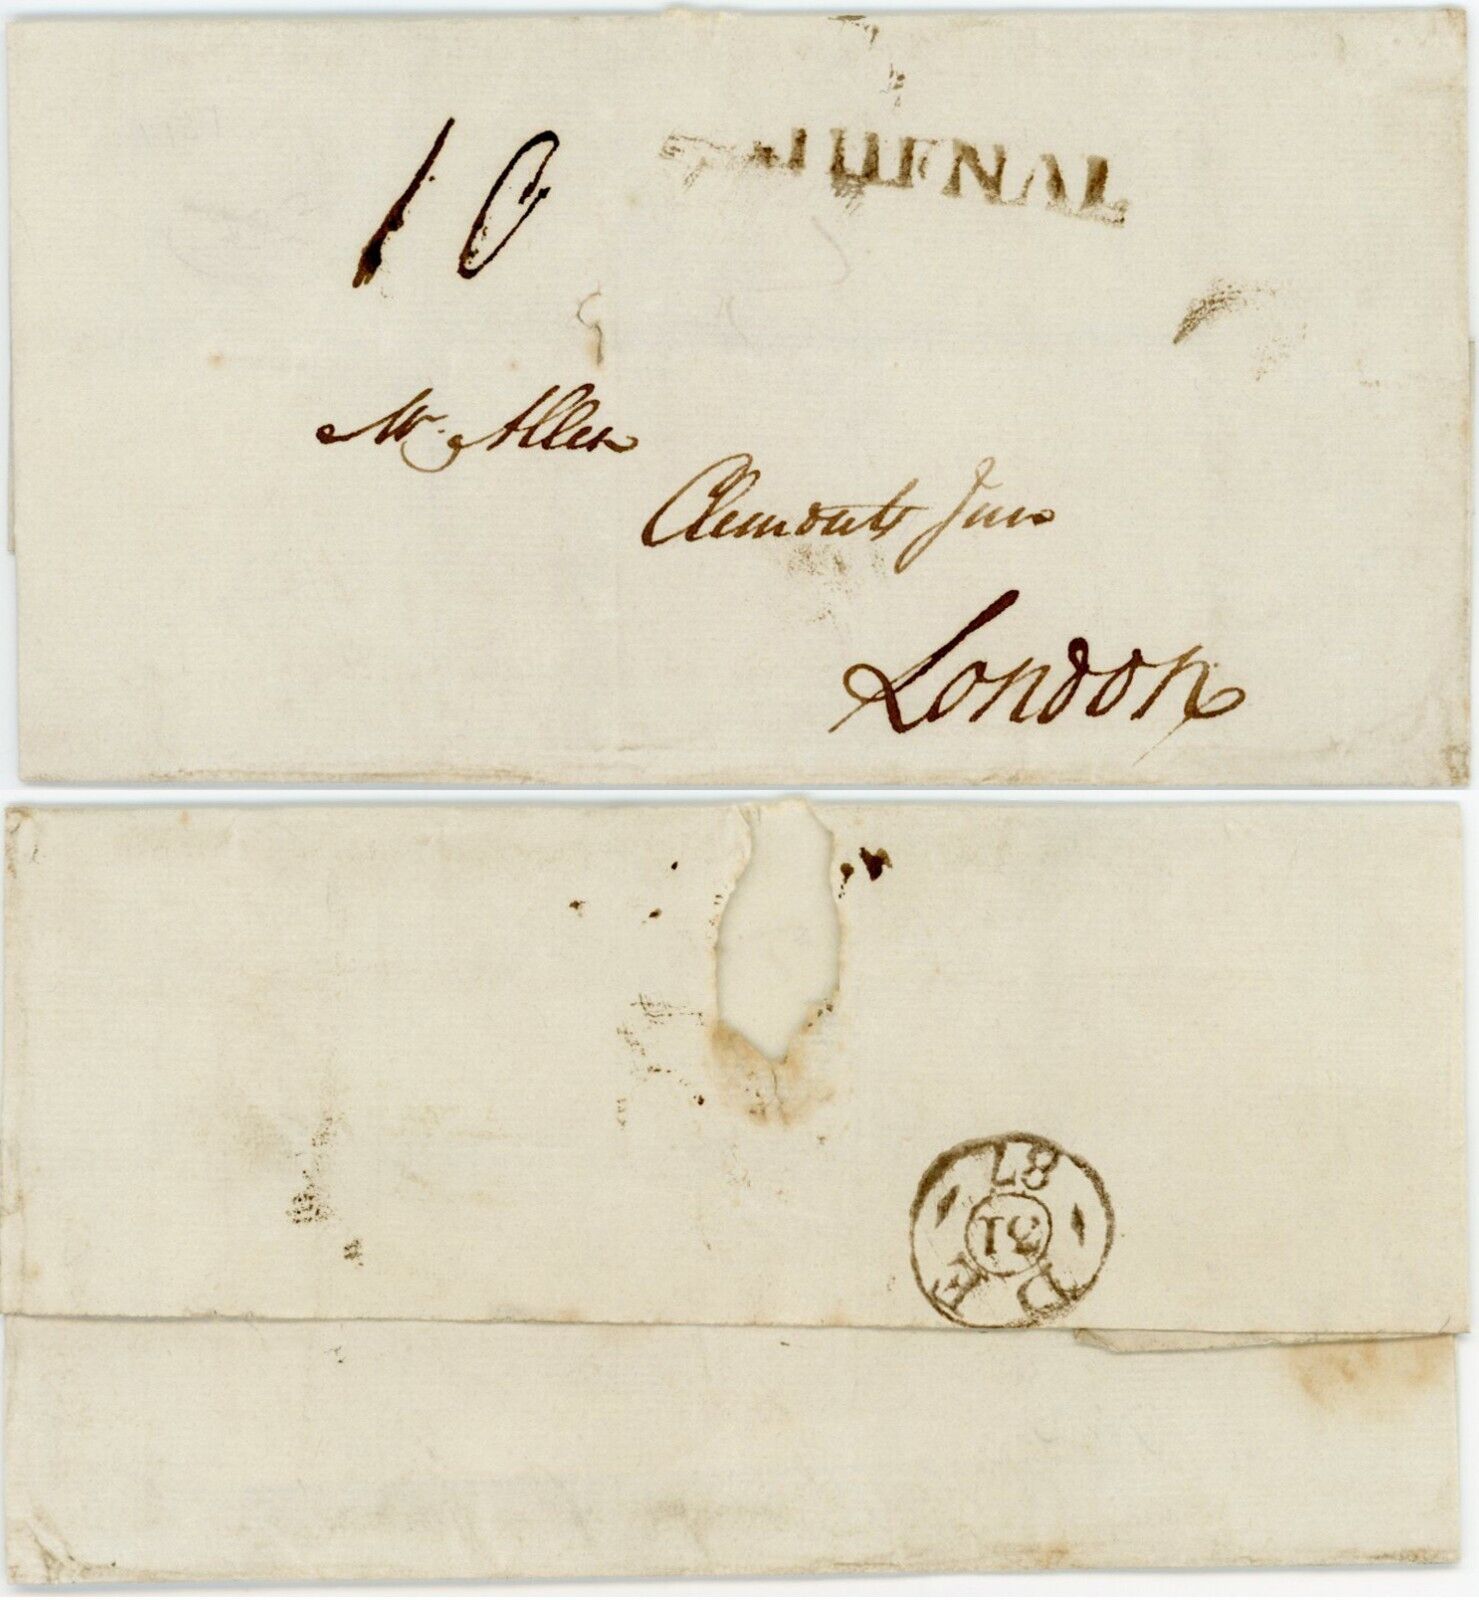 10
Mr. Allen
Clements Inn
London
DE
31
87